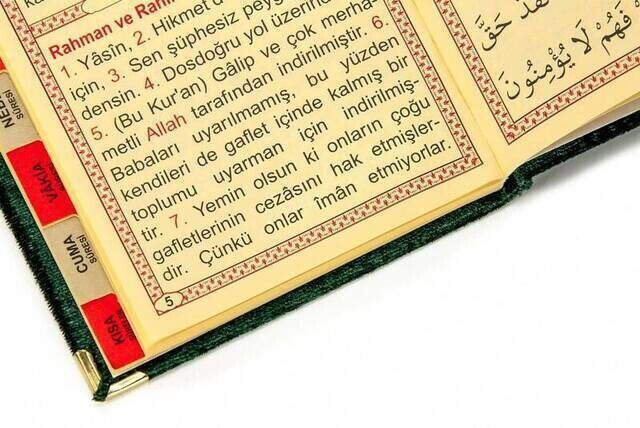 Rahman ve
1. Yâsîn, 2. Hikmet
için, 3. Sen şüphesiz
densin. 4. Dosdoğru yol üzerinde
5. (Bu Kur'an) Gâlip ve çok merha-
metli Allah tarafından indirilmiştir. 6.
Babaları uyarılmamış, bu yüzden
kendileri de gaflet içinde kalmış bir
toplumu uyarman için indirilmiş-
tir. 7. Yemin olsun ki onların çoğu
gafletlerinin cezâsını hak etmişler-
dir. Çünkü onlar îmân etmiyorlar.
5
SURESİ
VÂKIA
CUMA
SURESİ
KISA
حَقَّ
فَهُمْ لَا يُؤْمِنُونَ